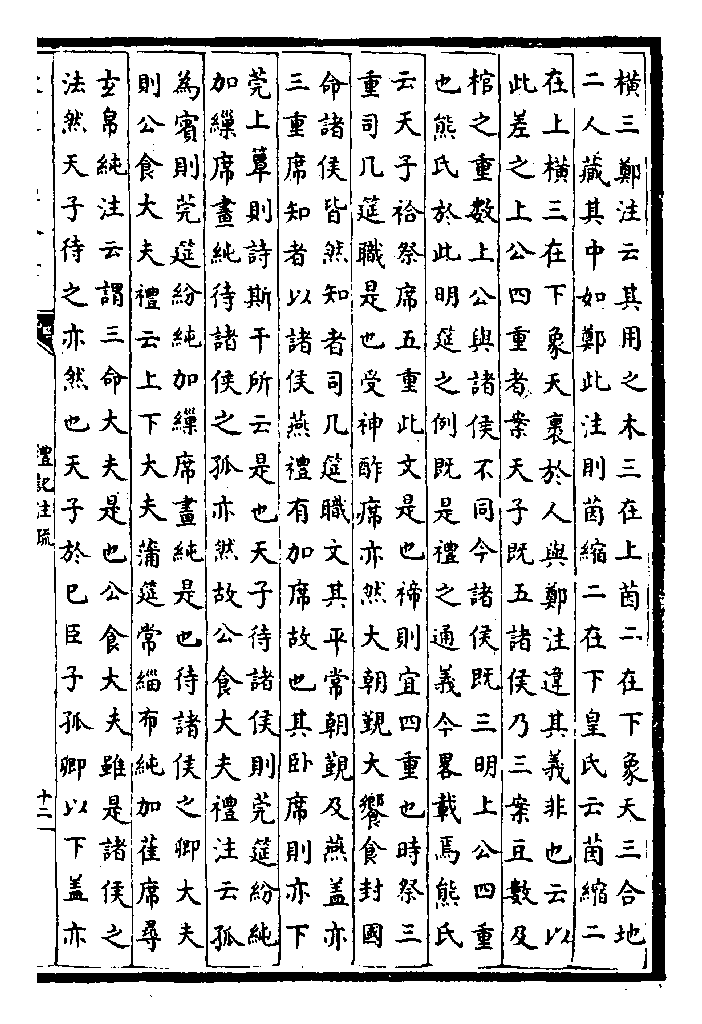 橫三鄭注云其用之木三在上茵二在下象天三合地
二人藏其中如鄭此注則茵縮二在下皇氏云茵縮二
在上橫三在下象天裹於人與鄭注違其義非也云以
此差之上公四重者案天子既五諸侯乃三案豆數及
棺之重數上公與諸侯不同今諸侯既三明上公四重
也熊氏於此明筵之例既是禮之通義今畧載焉熊氏
云天子祫祭席五重此文是也禘則宜四重也時祭三
重司几筵職是也受神酢席亦然大朝覲大饗食封國
命諸侯皆然知者司几筵職文其平常朝覲及燕盖亦
三重席知者以諸侯燕禮有加席故也其卧席則亦下
莞上簟則詩斯干所云是也天子待諸侯則莞筵紛純
加繅席畫純待諸侯之孤亦然故公食大夫禮注云孤
為賓則莞筵紛純加繅席畫純是也待諸侯之卿大夫
則公食大夫禮云上下大夫蒲筵常緇布純加萑席尋
玄帛純注云謂三命大夫是也公食大夫雖是諸侯之
法然天子待之亦然也天子於已臣子孤卿以下盖亦
禮記注疏
十二